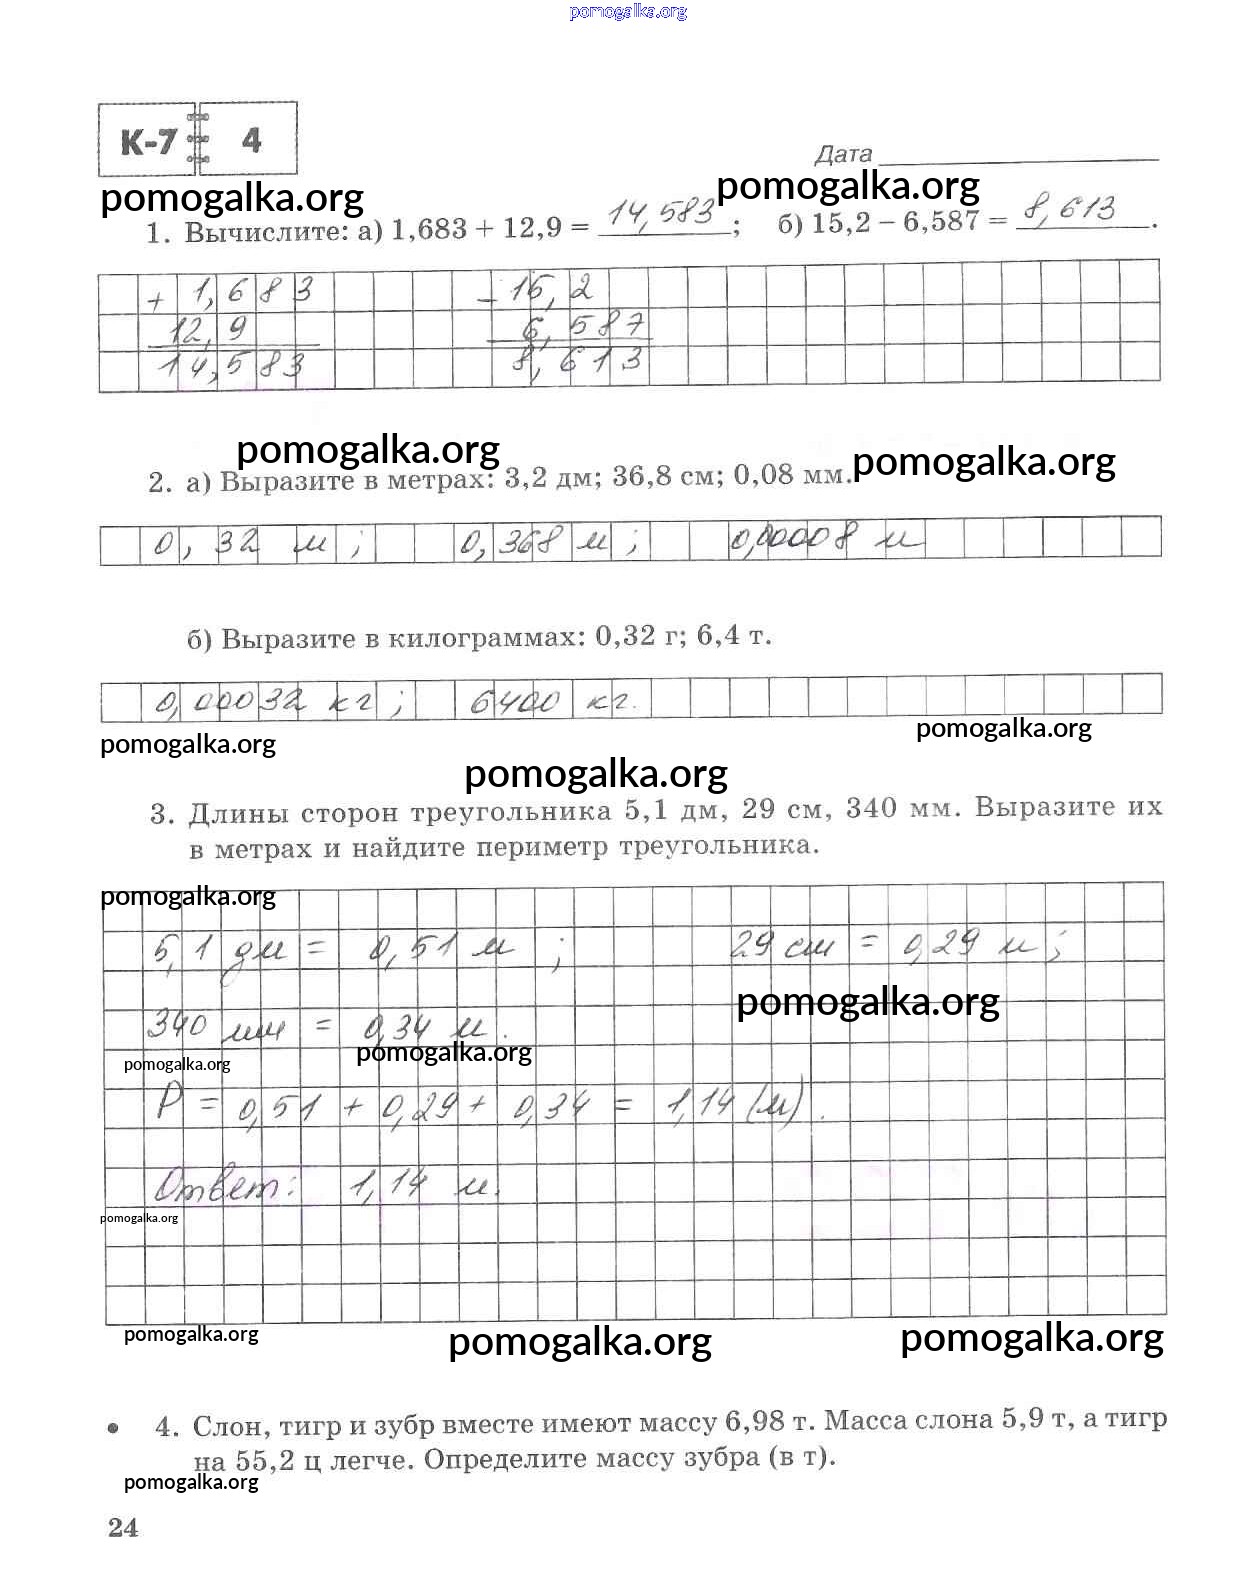 pomogalka.org
К-7 4
Дата
pomogalka.org pomogalka.org
1. Вычислите: а) 1,683 + 12,9 = 14,583; б) 15,2 − 6,587 = 8,613.
+ 1,683 − 15,2
12,9 6,587
14,583 8,613
pomogalka.org pomogalka.org
2. а) Выразите в метрах: 3,2 дм; 36,8 см; 0,08 мм.
0,32 м; 0,368 м; 0,00008 м
б) Выразите в килограммах: 0,32 г; 6,4 т.
0,00032 кг; 6400 кг.
pomogalka.org pomogalka.org
pomogalka.org
3. Длины сторон треугольника 5,1 дм, 29 см, 340 мм. Выразите их
в метрах и найдите периметр треугольника.
pomogalka.org
5,1 дм = 0,51 м; 29 см = 0,29 м;
pomogalka.org
340 мм = 0,34 м.
pomogalka.org pomogalka.org
P = 0,51 + 0,29 + 0,34 = 1,14 (м).
Ответ: 1,14 м.
pomogalka.org
pomogalka.org pomogalka.org pomogalka.org
• 4. Слон, тигр и зубр вместе имеют массу 6,98 т. Масса слона 5,9 т, а тигр
на 55,2 ц легче. Определите массу зубра (в т).
pomogalka.org
24